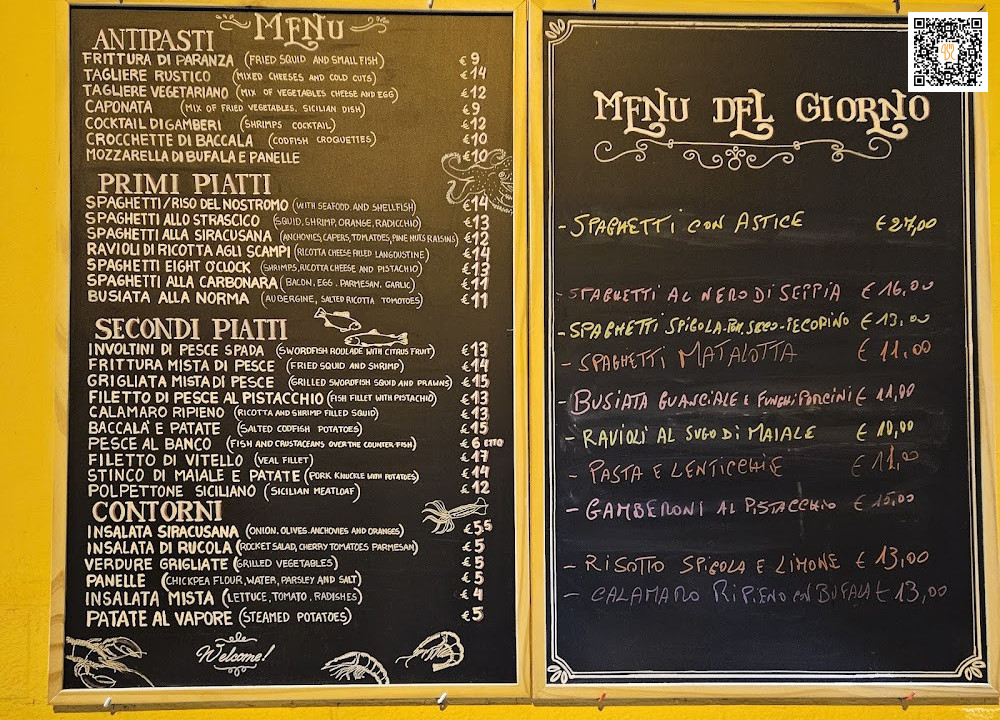 MENU
ANTIPASTI
FRITTURA DI PARANZA (FRIED SQUID AND SMALL FISH) € 9
TAGLIERE RUSTICO (MIXED CHEESES AND COLD CUTS) € 14
TAGLIERE VEGETARIANO (MIX OF VEGETABLES CHEESE AND EGG) € 12
CAPONATA (MIX OF FRIED VEGETABLES. SICILIAN DISH) € 9
COCKTAIL DI GAMBERI (SHRIMPS COCKTAIL) € 12
CROCCHETTE DI BACCALA (CODFISH CROQUETTES) € 10
MOZZARELLA DI BUFALA E PANELLE € 10
PRIMI PIATTI
SPAGHETTI/RISO DEL NOSTROMO (WITH SEAFOOD AND SHELLFISH) € 14
SPAGHETTI ALLO STRASCICO (SQUID, SHRIMP, ORANGE, RADICCHIO) € 13
SPAGHETTI ALLA SIRACUSANA (ANCHOVIES, CAPERS, TOMATOES, PINE NUTS RAISINS) € 12
RAVIOLI DI RICOTTA AGLI SCAMPI (RICOTTA CHEESE FILLED LANGOUSTINE) € 14
SPAGHETTI EIGHT O'CLOCK (SHRIMPS, RICOTTA CHEESE AND PISTACHIO) € 13
SPAGHETTI ALLA CARBONARA (BACON, EGG, PARMESAN, GARLIC) € 11
BUSIATA ALLA NORMA (AUBERGINE, SALTED RICOTTA TOMOTOES) € 11
SECONDI PIATTI
INVOLTINI DI PESCE SPADA (SWORDFISH ROULADE WITH CITRUS FRUIT) € 13
FRITTURA MISTA DI PESCE (FRIED SQUID AND SHRIMP) € 14
GRIGLIATA MISTA DI PESCE (GRILLED SWORDFISH SQUID AND PRAWNS) € 15
FILETTO DI PESCE AL PISTACCHIO (FISH FILLET WITH PISTACHIO) € 13
CALAMARO RIPIENO (RICOTTA AND SHRIMP FILLED SQUID) € 13
BACCALA' E PATATE (SALTED CODFISH POTATOES) € 15
PESCE AL BANCO (FISH AND CRUSTACEANS OVER THE COUNTER-FISH) € 6 ETTO
FILETTO DI VITELLO (VEAL FILLET) € 17
STINCO DI MAIALE E PATATE (PORK KNUCKLE WITH POTATOES) € 14
POLPETTONE SICILIANO (SICILIAN MEATLOAF) € 12
CONTORNI
INSALATA SIRACUSANA (ONION, OLIVES, ANCHOVIES AND ORANGES) € 5,5
INSALATA DI RUCOLA (ROCKET SALAD, CHERRY TOMATOES PARMESAN) € 5
VERDURE GRIGLIATE (GRILLED VEGETABLES) € 5
PANELLE (CHICKPEA FLOUR, WATER, PARSLEY AND SALT) € 5
INSALATA MISTA (LETTUCE, TOMATO, RADISHES) € 4
PATATE AL VAPORE (STEAMED POTATOES) € 5
Welcome!
MENU DEL GIORNO
- SPAGHETTI CON ASTICE € 27,00
- SPAGHETTI AL NERO DI SEPPIA € 16,00
- SPAGHETTI SPIGOLA-POM. SECCO-PECORINO € 13,00
- SPAGHETTI MATALOTTA € 11,00
- BUSIATA GUANCIALE E FUNGHI PORCINI € 11,00
- RAVIOLI AL SUGO DI MAIALE € 10,00
- PASTA E LENTICCHIE € 11,00
- GAMBERONI AL PISTACCHIO € 15,00
- RISOTTO SPIGOLA E LIMONE € 13,00
- CALAMARO RIPIENO CON BUFALA € 13,00